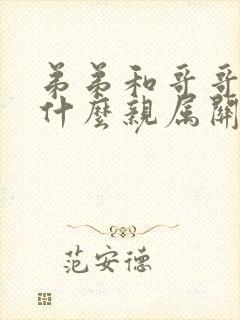 弟弟和哥哥
什麼親属關
范安德